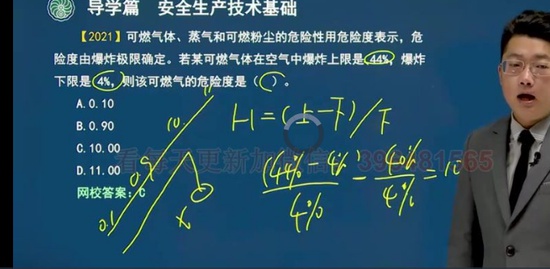 导学篇 安全生产技术基础
【2021】可燃气体、蒸气和可燃粉尘的危险性用危险度表示，危
险度由爆炸极限确定。若某可燃气体在空气中爆炸上限是44%，爆炸
下限是4%，则该可燃气的危险度是（ ）。
A. 0.10
B. 0.90
C. 10.00
D. 11.00
网校答案：C
H=(上-下)/下
(44%-4%)/4% = 40%/4% = 10
0.1 0.9 10